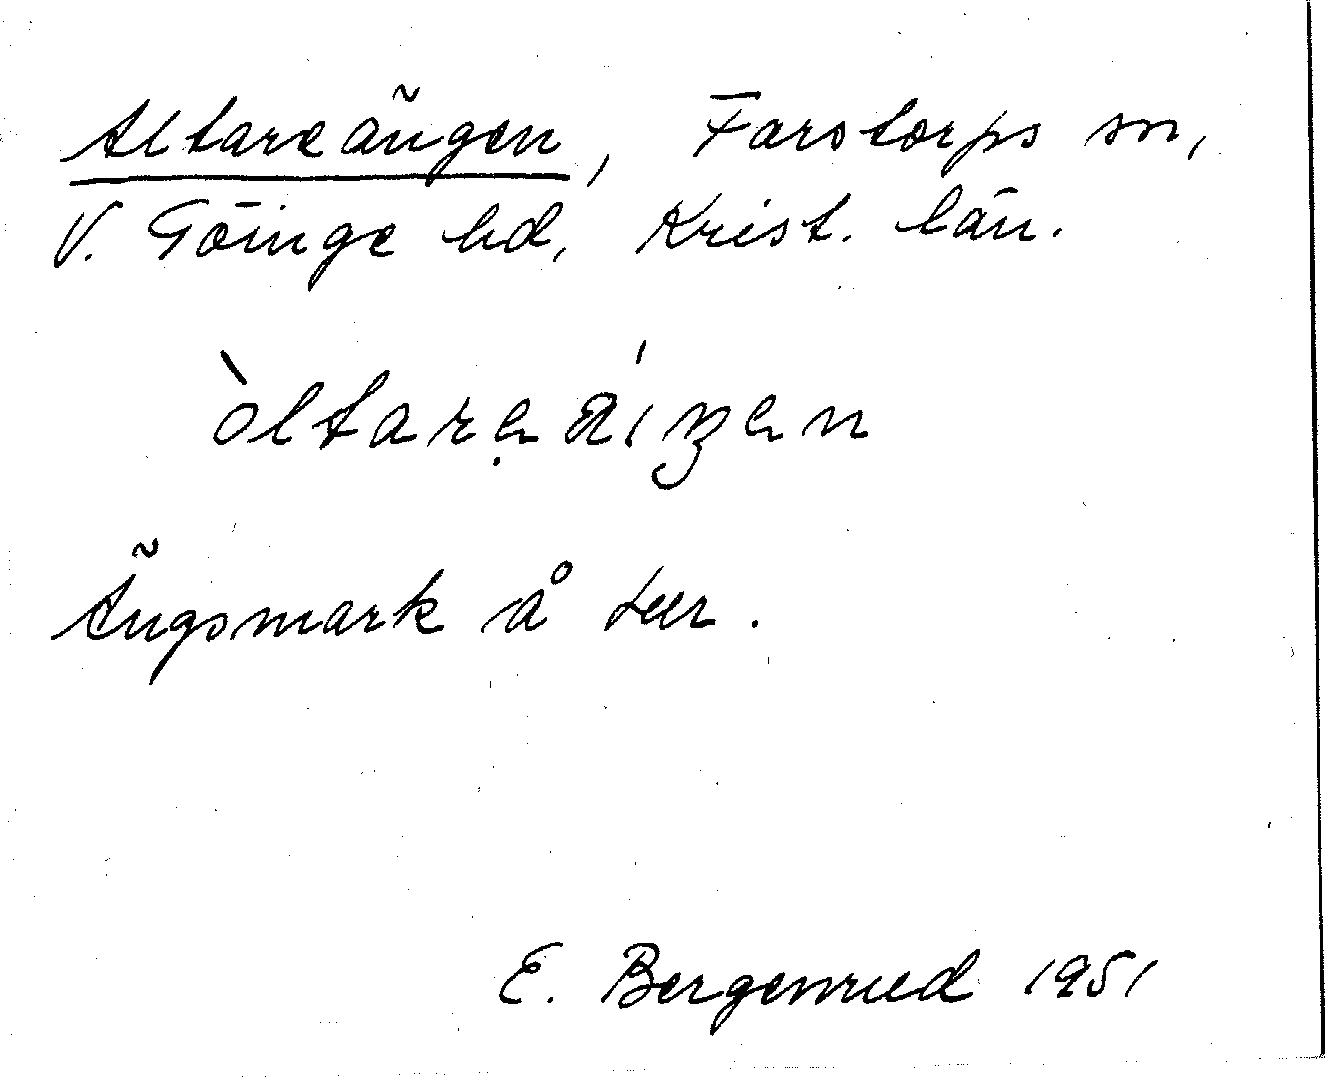 Altareängen, Farstorps sn,
V. Göinge hd, Krist. län.
òltareáiŋen
Ängsmark å ter.
E. Bergenrud 1951